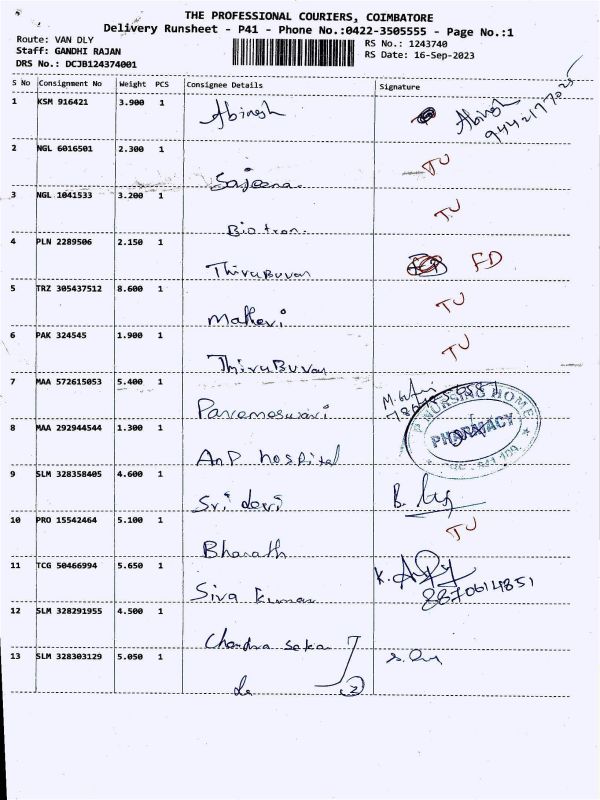 THE PROFESSIONAL COURIERS, COIMBATORE
Delivery Runsheet - P41 - Phone No.:0422-3505555 - Page No.:1
Route: VAN DLY
Staff: GANDHI RAJAN
DRS No.: DCJB124374001
RS No.: 1243740
RS Date: 16-Sep-2023
S No Consignment No Weight PCS Consignee Details Signature
1 KSM 916421 3.900 1 Abinesh Abinesh
2 NGL 6016501 2.300 1 Sajeena TU
3 NGL 1041533 3.200 1 Biotron TU
4 PLN 2289506 2.150 1 Thirubuvan FD
5 TRZ 305437512 8.600 1 Mallevi TU
6 PAK 324545 1.900 1 Thirubuvan TU
7 MAA 572615053 5.400 1 Parameswari
8 MAA 292944544 1.300 1 AnP hospital P NURSING HOME PHARMACY
9 SLM 328358405 4.600 1 Sri devi
10 PRO 15542464 5.100 1 Bharath TU
11 TCG 50466994 5.650 1 Siva kumar 8870614851
12 SLM 328291955 4.500 1 Chandra sekar
13 SLM 328303129 5.050 1 do 2